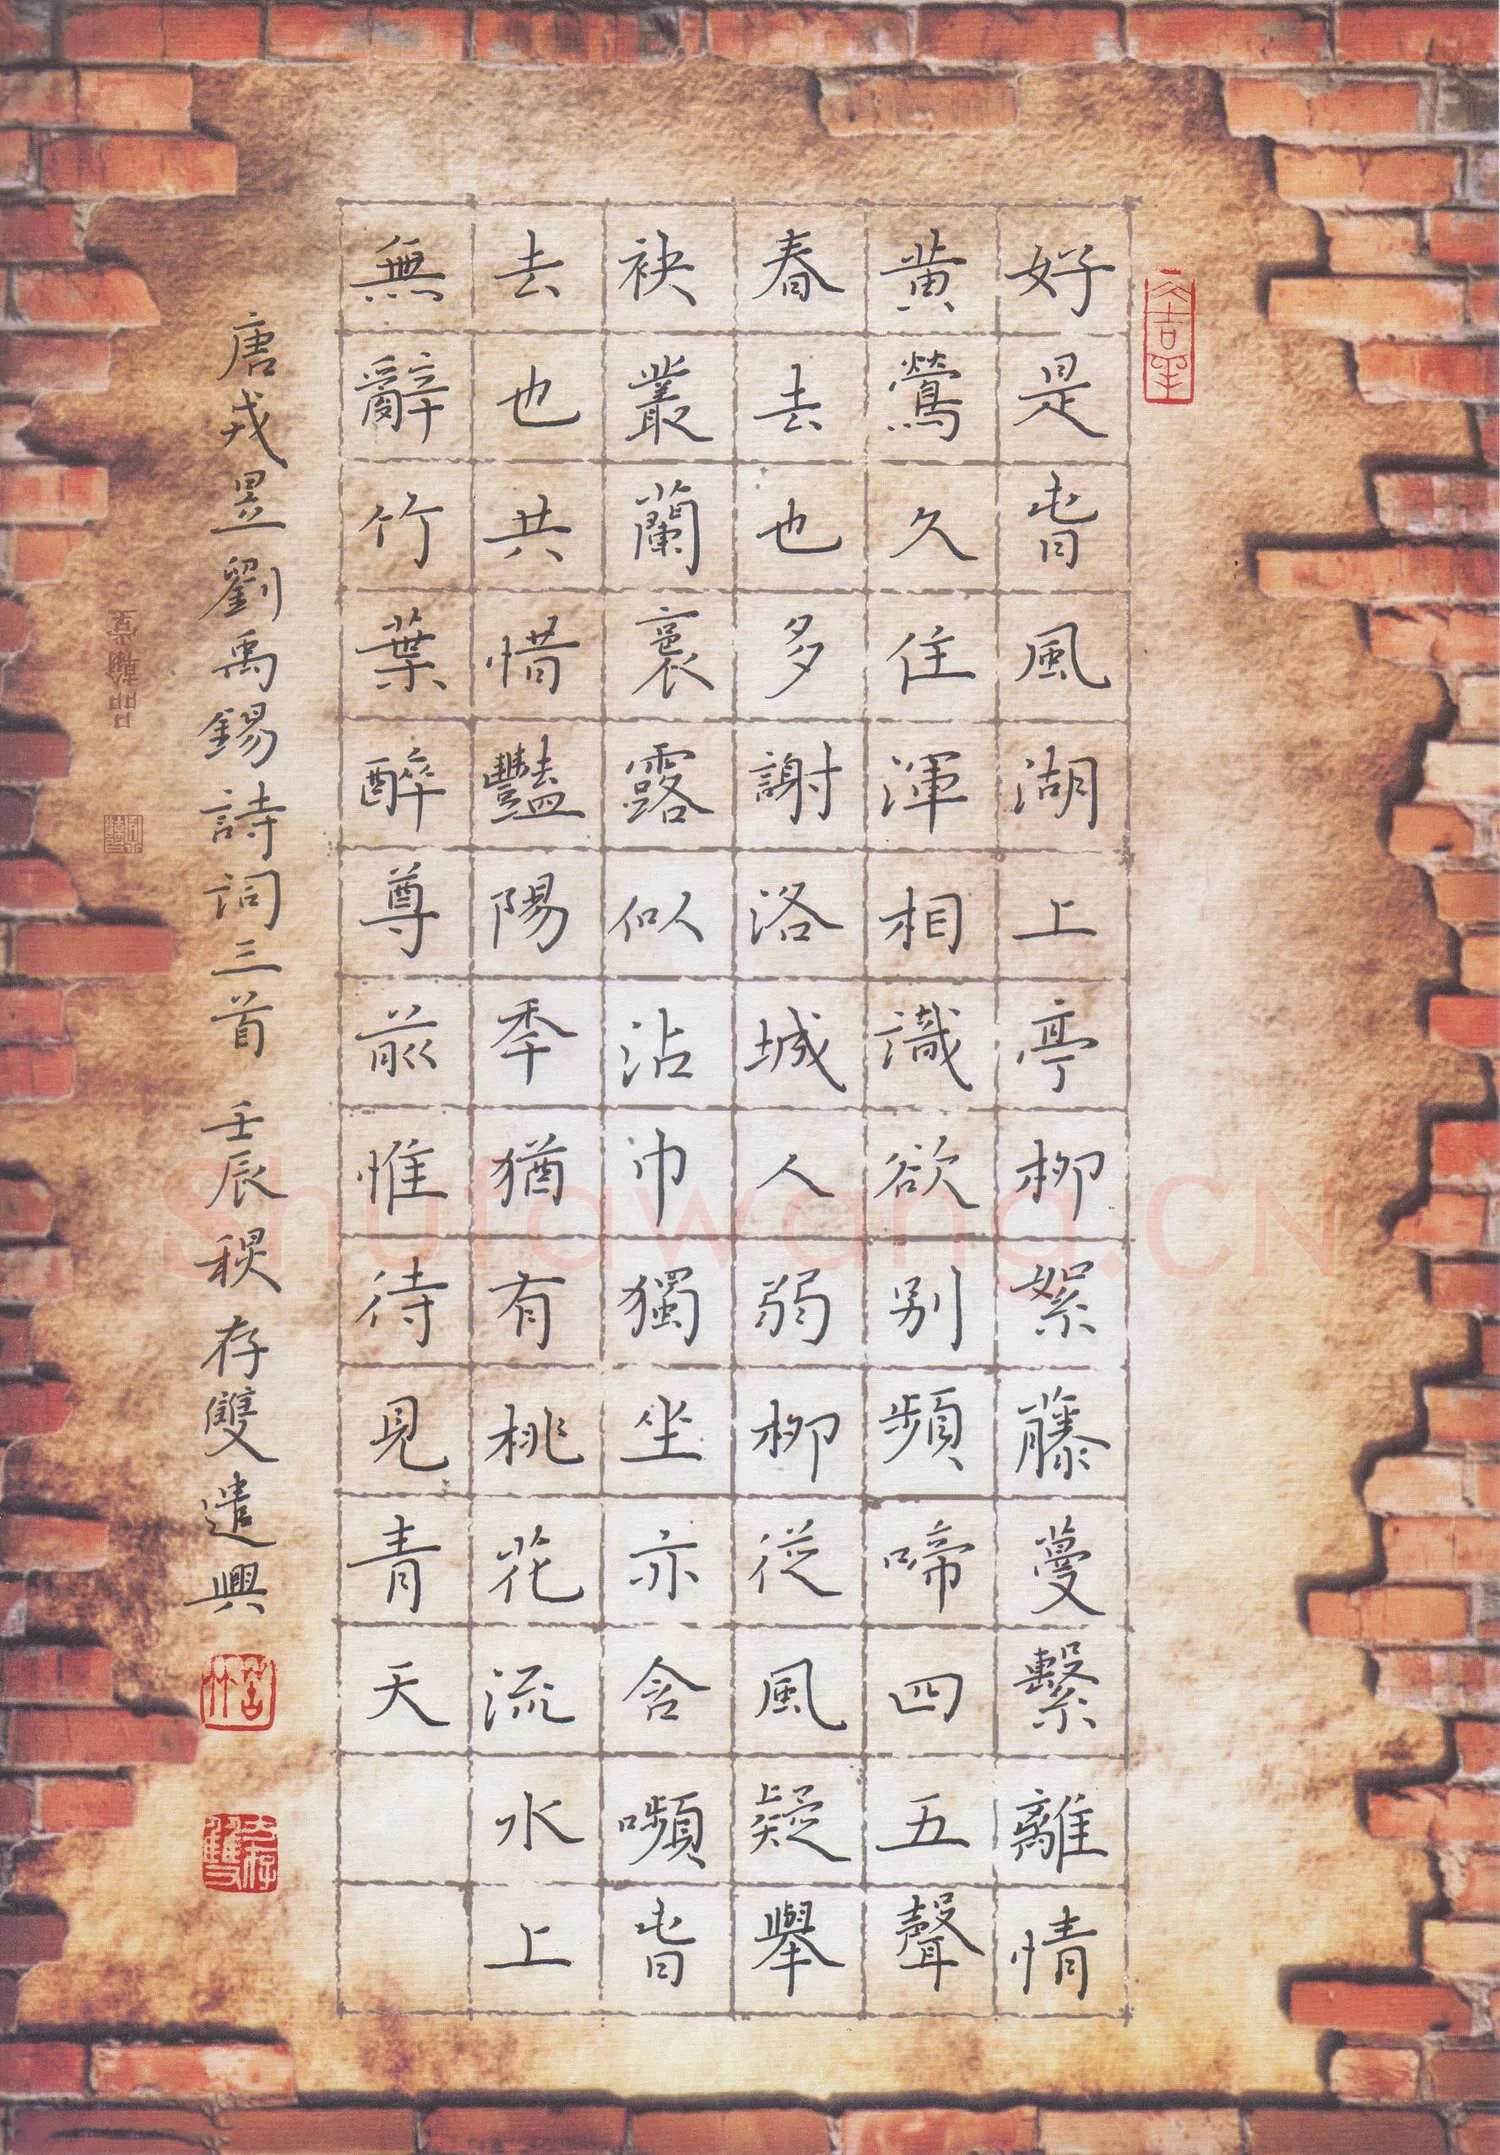 好是旾風湖上亭柳絮藤蔓繫離情
黄鶯久住渾相識欲别頻啼四五聲
春去也多謝洛城人弱柳從風疑舉
袂叢蘭裛露似沾巾獨坐亦含嚬旾
去也共惜豔陽秊猶有桃花流水上
無辭竹葉醉尊前惟待見青天
唐戎昱劉禹錫詩詞三首 壬辰秋存雙遣興
大吉羊
Shufawang.CN